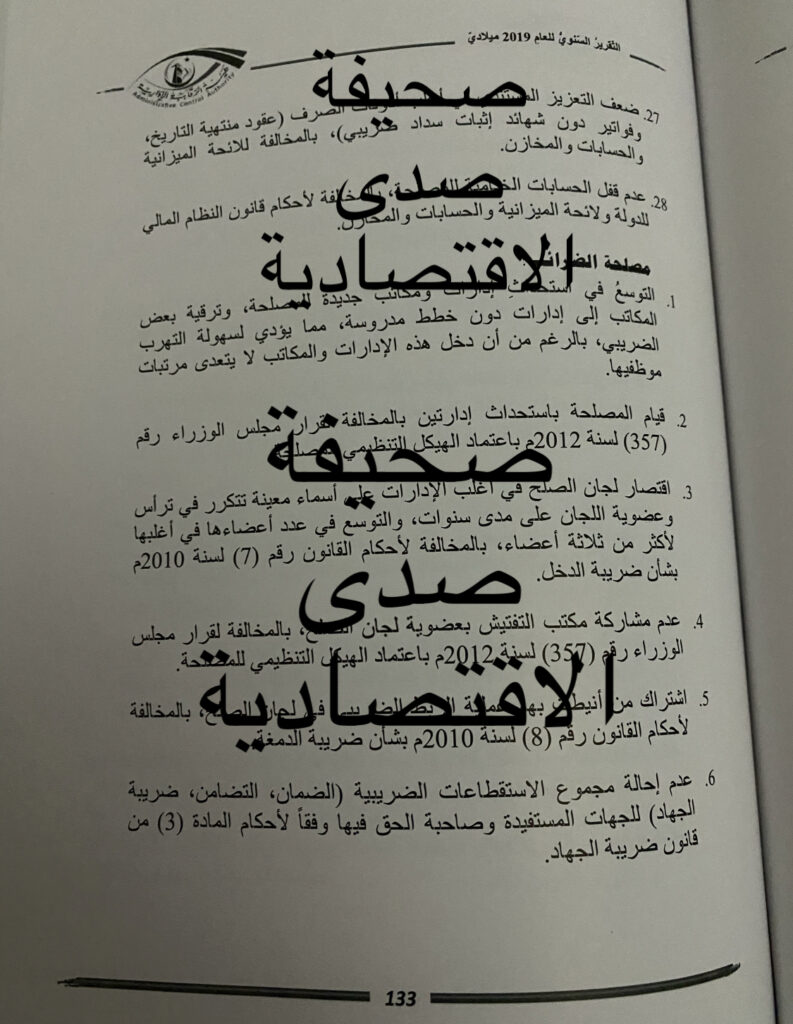 التقريرُ السَنويُّ للعامِ 2019 ميلاديّ
هيئة الرقابة الإدارية
Administrative Control Authority
صحيفة
صدى
الاقتصادية
27. ضعف التعزيز الصرف (عقود منتهية التاريخ،
وفواتير دون شهائد إثبات سداد ضريبي)، بالمخالفة للائحة الميزانية
والحسابات والمخازن.
28. عدم قفل الحسابات الختامية للمصلحة، بالمخالفة لأحكام قانون النظام المالي
للدولة ولائحة الميزانية والحسابات والمخازن.
مصلحة الضرائب:
1. التوسعُ في استحداثِ إدارات ومكاتب جديدة للمصلحة، وترقية بعض
المكاتب إلى إدارات دون خطط مدروسة، مما يؤدي لسهولة التهرب
الضريبي، بالرغم من أن دخل هذه الإدارات والمكاتب لا يتعدى مرتبات
موظفيها.
صحيفة
صدى
الاقتصادية
2. قيام المصلحة باستحداث إدارتين بالمخالفة لقرار مجلس الوزراء رقم
(357) لسنة 2012م باعتماد الهيكل التنظيمي للمصلحة.
3. اقتصار لجان الصلح في أغلب الإدارات على أسماء معينة تتكرر في ترأس
وعضوية اللجان على مدى سنوات، والتوسع في عدد أعضاءها في أغلبها
لأكثر من ثلاثة أعضاء، بالمخالفة لأحكام القانون رقم (7) لسنة 2010م
بشأن ضريبة الدخل.
4. عدم مشاركة مكتب التفتيش بعضوية لجان الصلح، بالمخالفة لقرار مجلس
الوزراء رقم (357) لسنة 2012م باعتماد الهيكل التنظيمي للمصلحة.
5. اشتراك من أنيطت بهم عملية الربط الضريبي في لجان الصلح، بالمخالفة
لأحكام القانون رقم (8) لسنة 2010م بشأن ضريبة الدمغة.
6. عدم إحالة مجموع الاستقطاعات الضريبية (الضمان، التضامن، ضريبة
الجهاد) للجهات المستفيدة وصاحبة الحق فيها وفقاً لأحكام المادة (3) من
قانون ضريبة الجهاد.
133